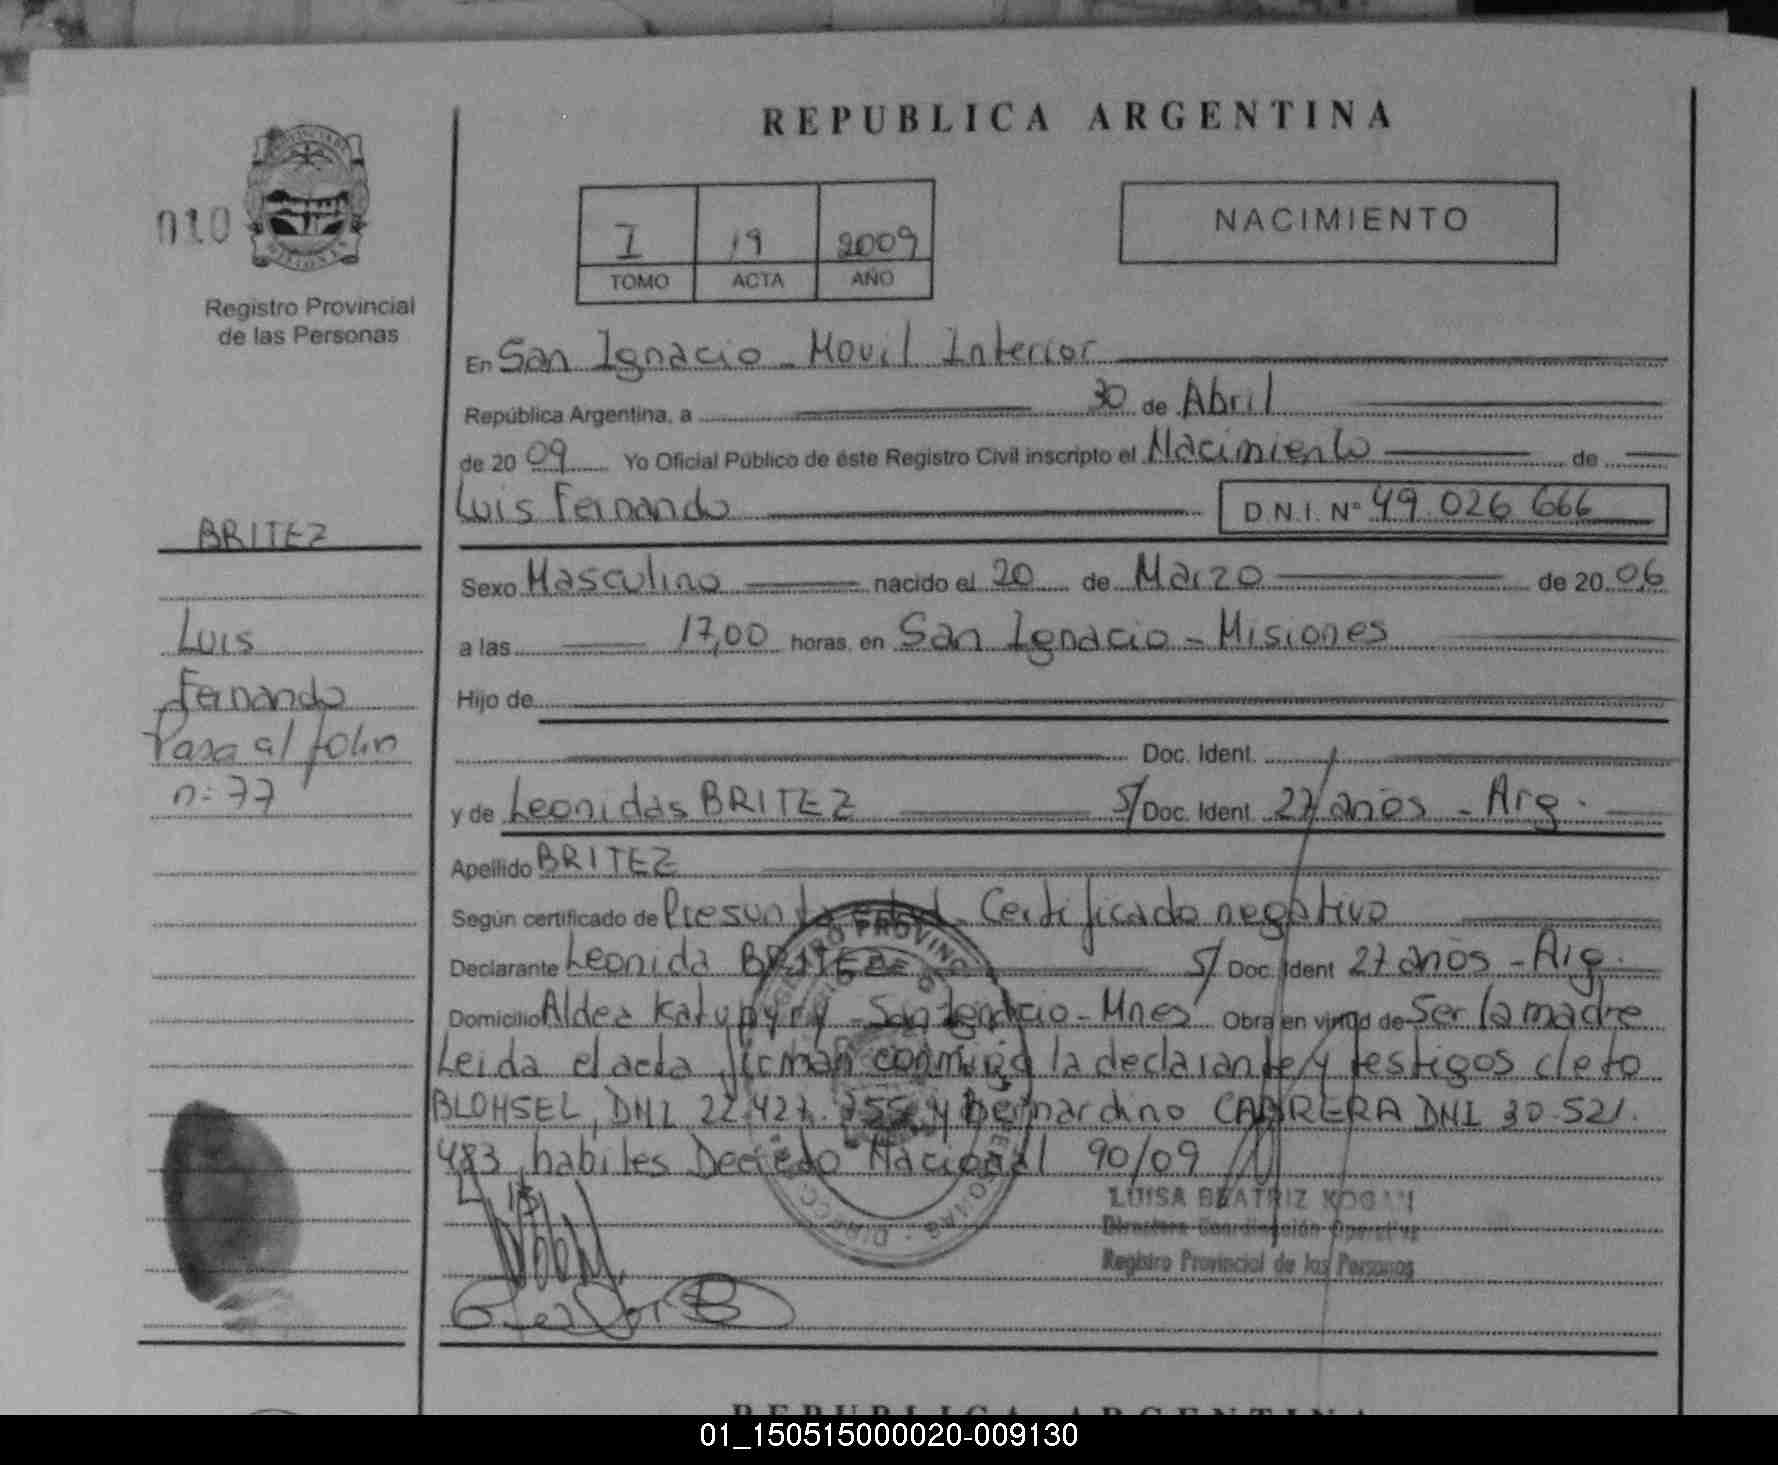 REPUBLICA ARGENTINA
010
Registro Provincial
de las Personas
I 19 2009
TOMO ACTA AÑO
NACIMIENTO
En San Ignacio - Movil Interior
República Argentina, a 30 de Abril
de 20 09 Yo Oficial Público de éste Registro Civil inscripto el Nacimiento de
Luis Fernando D.N.I. N° 49.026.666
BRITEZ
Luis
Fernando
Pasa al folio
n: 77
Sexo Masculino nacido el 20 de Marzo de 20 06
a las 17,00 horas, en San Ignacio - Misiones
Hijo de
Doc. Ident.
y de Leonidas BRITEZ S/ Doc. Ident. 27 años - Arg.
Apellido BRITEZ
Según certificado de Presunta edad - Certificado negativo
Declarante Leonida BRITEZ S/ Doc. Ident 27 años - Arg.
Domicilio Aldea Katupyry - San Ignacio - Mnes Obra en virtud de Ser la madre
Leida el acta firman conmigo la declarante y testigos cleto
BLOHSEL, DNI 22.427.255 y Bernardino CABRERA DNI 30.521.
483 habiles Decreto Nacional 90/09
LUISA BEATRIZ KOGAN
Directora Coordinación Operativa
Registro Provincial de las Personas
REPUBLICA ARGENTINA
01_150515000020-009130